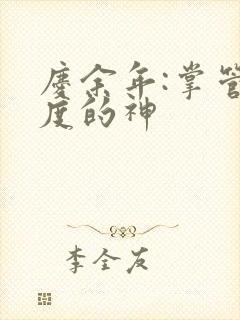 庆余年:掌管
度的神
李全友